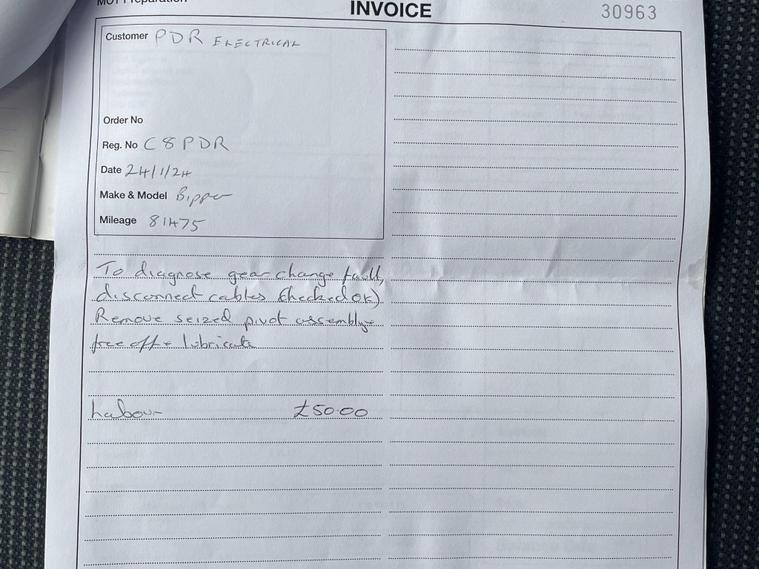 MOT Preparation
INVOICE
30963
Customer PDR ELECTRICAL
Order No
Reg. No C8 PDR
Date 24/1/24
Make & Model Bipper
Mileage 81475
To diagnose gear change fault,
disconnect cables (checked ok)
Remove seized pivot assembly
free off + lubricate
Labour £50 00